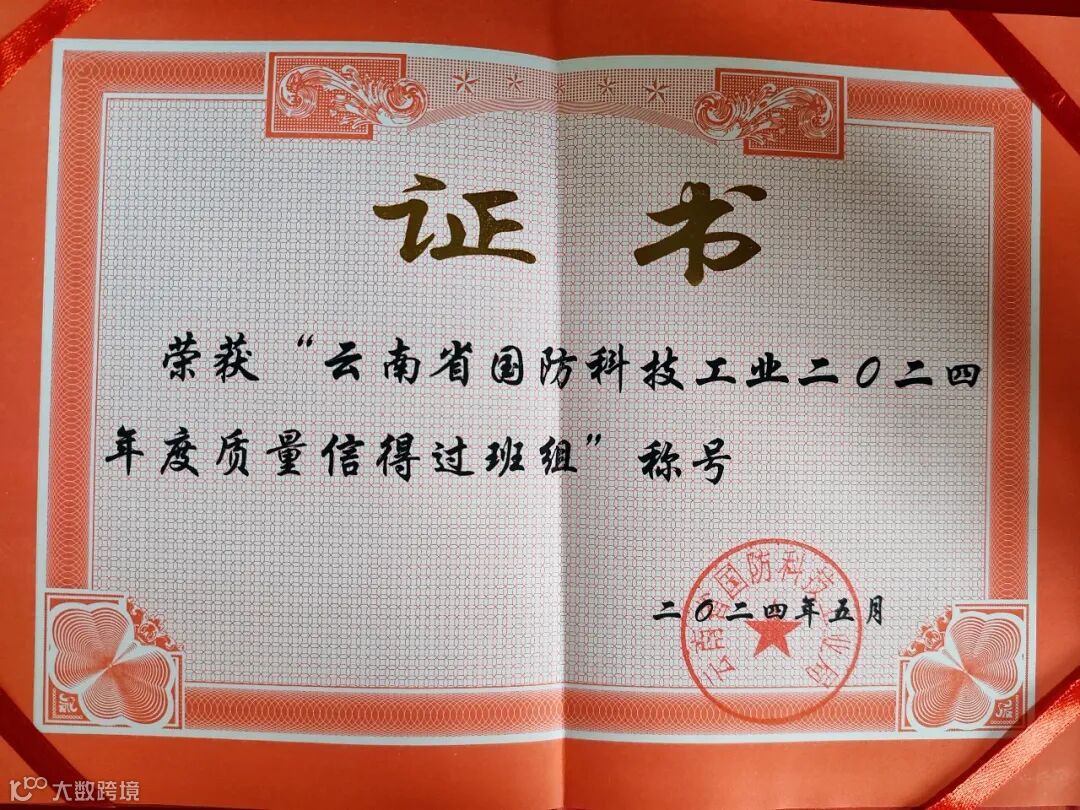 证书
荣获“云南省国防科技工业二〇二四
年度质量信得过班组”称号
云南省国防科技工业局
二〇二四年五月
大数跨境